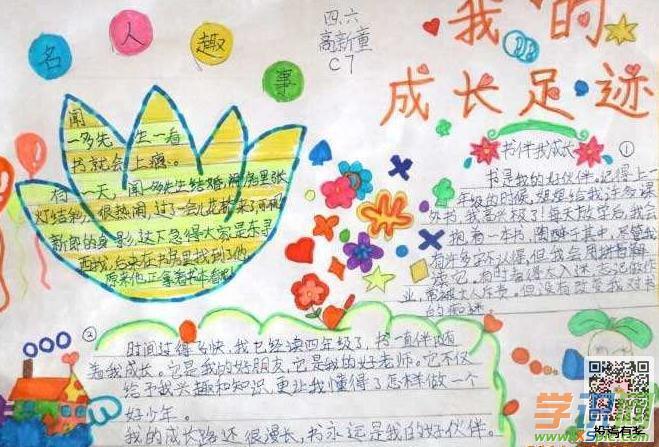 名人趣事
四、六
高新童
C7
我的
成长足迹
闻
一多先生一看
书就会上瘾。
有一天,闻一多先生结婚,洞房里张
灯结彩,很热闹,过了一会儿花轿来了,可
新郎的身影,这下急得大家是东寻
西找,后来在书房里找到了他,
原来他正拿着书本看
书伴我成长
①
书是我的好伙伴。记得上一
年级的时候,妈妈给我
外书,我高兴极了!每天放学后,我会
抱着一本书,陶醉于其中,尽管我
有许多字不认得,但我会用拼音
读它。有时看得太入迷,忘记做作
业,常被大人斥书。但没有改变我对书
的痴迷。
②
时间过得多快,我已经读四年级了,书一直伴随
着我成长。它是我的好朋友,它是我的好老师。它不仅
给予我兴趣和知识,更让我懂得了怎样做一个
好少年。
我的成长路还很漫长,书永远是我的好伙伴。
投稿有奖